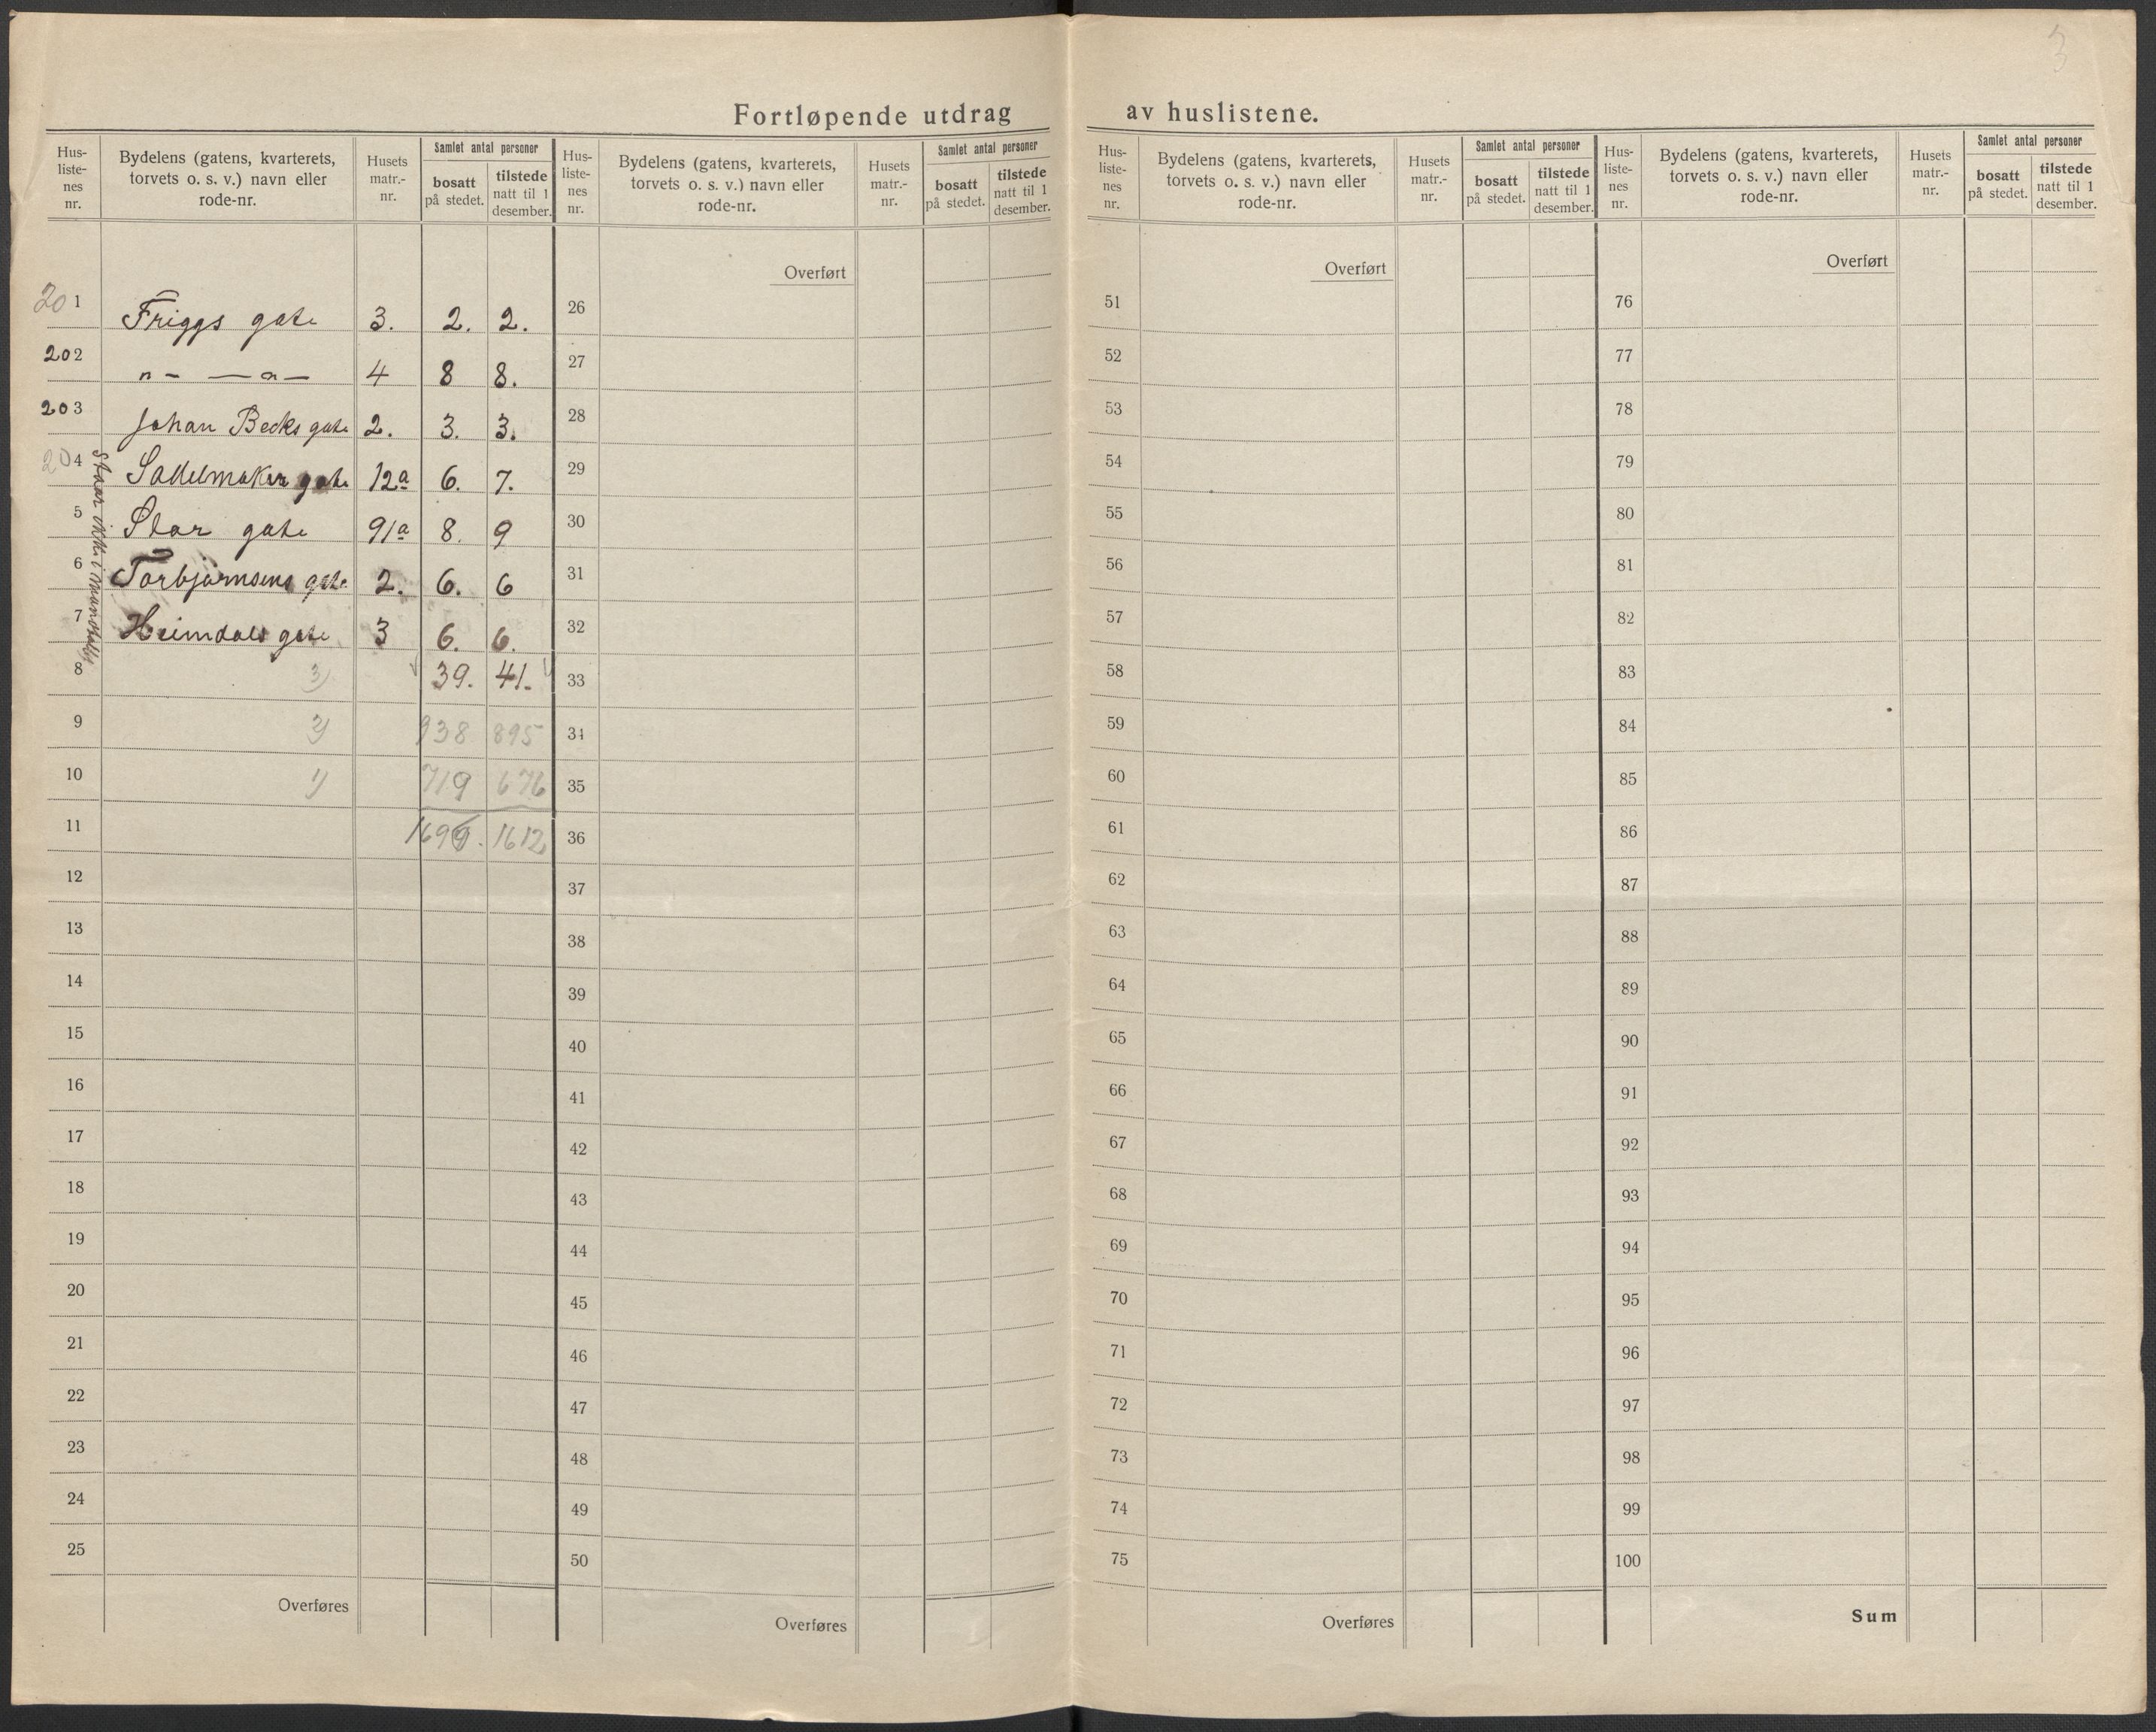 3
Fortløpende utdrag av huslistene.
Hus-
liste-
nes
nr.
Bydelens (gatens, kvarterets,
torvets o. s. v.) navn eller
rode-nr.
Husets
matr.-
nr.
Samlet antal personer
bosatt
på stedet.
tilstede
natt til 1
desember.
201 Friggs gate 3. 2. 2.
202 " — — " — 4 8 8.
203 Johan Becks gate 2. 3. 3.
204 Sadelmaker gate 12a 6. 7.
5 Stor gate 91a 8. 9
6 Torbjørnsens gate 2. 6. 6
7 Heimdals gate 3 6. 6.
Staar ikke i
8 3) 39. 41.
9 2) 938 895
10 1) 719 676
11 1699. 1612
12
13
14
15
16
17
18
19
20
21
22
23
24
25
Overføres
Hus-
liste-
nes
nr.
Bydelens (gatens, kvarterets,
torvets o. s. v.) navn eller
rode-nr.
Husets
matr.-
nr.
Samlet antal personer
bosatt
på stedet.
tilstede
natt til 1
desember.
Overført
26
27
28
29
30
31
32
33
34
35
36
37
38
39
40
41
42
43
44
45
46
47
48
49
50
Overføres
Hus-
liste-
nes
nr.
Bydelens (gatens, kvarterets,
torvets o. s. v.) navn eller
rode-nr.
Husets
matr.-
nr.
Samlet antal personer
bosatt
på stedet.
tilstede
natt til 1
desember.
Overført
51
52
53
54
55
56
57
58
59
60
61
62
63
64
65
66
67
68
69
70
71
72
73
74
75
Overføres
Hus-
liste-
nes
nr.
Bydelens (gatens, kvarterets,
torvets o. s. v.) navn eller
rode-nr.
Husets
matr.-
nr.
Samlet antal personer
bosatt
på stedet.
tilstede
natt til 1
desember.
Overført
76
77
78
79
80
81
82
83
84
85
86
87
88
89
90
91
92
93
94
95
96
97
98
99
100
Sum